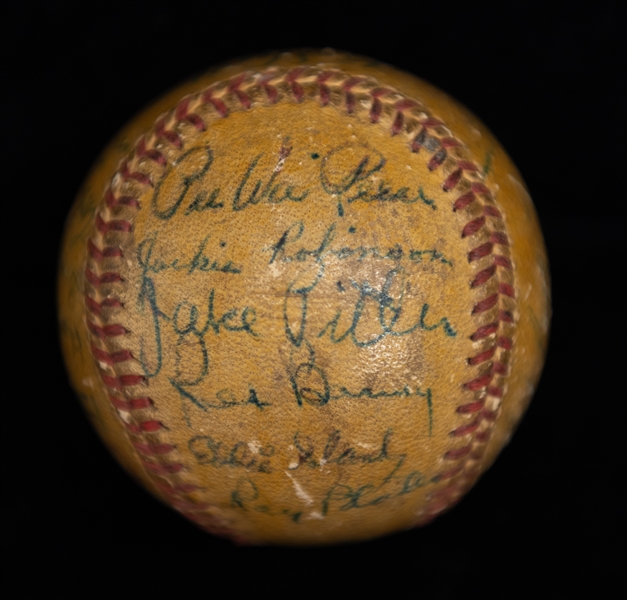 Pee Wee Reese
Jackie Robinson
Jake Pitler
Rex Barney
Eddie
Ray Blades